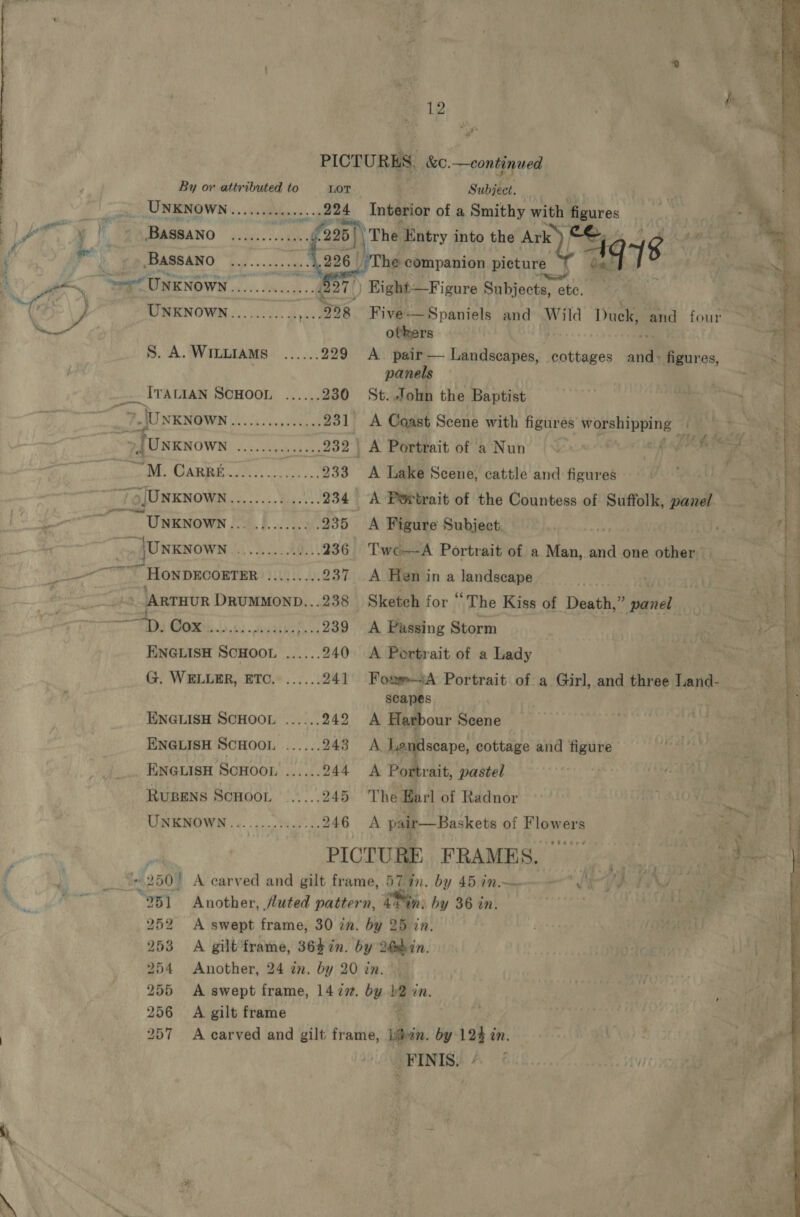 12
PICTURES, &c.—continued
By or attributed to LOT Subject.
UNKNOWN ............... 224 Interior of a Smithy with figures
BASSANO ............ 225 The Entry into the Ark
BASSANO ............ 226 The companion picture
UNKNOWN ............... 227 Eight—Figure Subjects, etc.
UNKNOWN ............... 228 Five — Spaniels and Wild Duck, and four
others
S. A. WILLIAMS ...... 229 A pair — Landscapes, cottages and figures,
panels
ITALIAN SCHOOL ...... 230 St. John the Baptist
UNKNOWN ............... 231 A Coast Scene with figures worshipping
UNKNOWN ............... 232 A Portrait of a Nun
M. CARRÉ ............... 233 A Lake Scene, cattle and figures
UNKNOWN ............... 234 A Portrait of the Countess of Suffolk, panel
UNKNOWN ............... 235 A Figure Subject
UNKNOWN ............... 236 Two—A Portrait of a Man, and one other
HONDECOETER ......... 237 A Hen in a landscape
ARTHUR DRUMMOND...238 Sketch for “The Kiss of Death,” panel
D. COX .................. 239 A Passing Storm
ENGLISH SCHOOL ...... 240 A Portrait of a Lady
G. WELLER, ETC. ...... 241 Four—A Portrait of a Girl, and three Land-
scapes
ENGLISH SCHOOL ...... 242 A Harbour Scene
ENGLISH SCHOOL ...... 243 A Landscape, cottage and figure
ENGLISH SCHOOL ...... 244 A Portrait, pastel
RUBENS SCHOOL ...... 245 The Earl of Radnor
UNKNOWN ............... 246 A pair—Baskets of Flowers
PICTURE FRAMES.
250 A carved and gilt frame, 57 in. by 45 in.
251 Another, fluted pattern, in. by 36 in.
252 A swept frame, 30 in. by 25 in.
253 A gilt frame, 36½ in. by in.
254 Another, 24 in. by 20 in.
255 A swept frame, 14 in. by 12 in.
256 A gilt frame
257 A carved and gilt frame, in. by 12½ in.
FINIS.